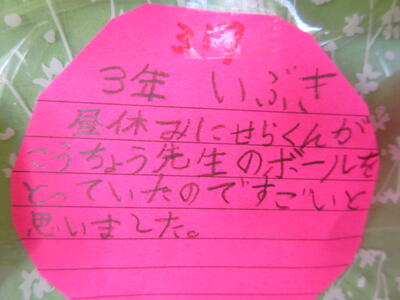 3年 いぶき
昼休みにせらくんが
こうちょう先生のボールを
とっていたのですごいと
思いました。